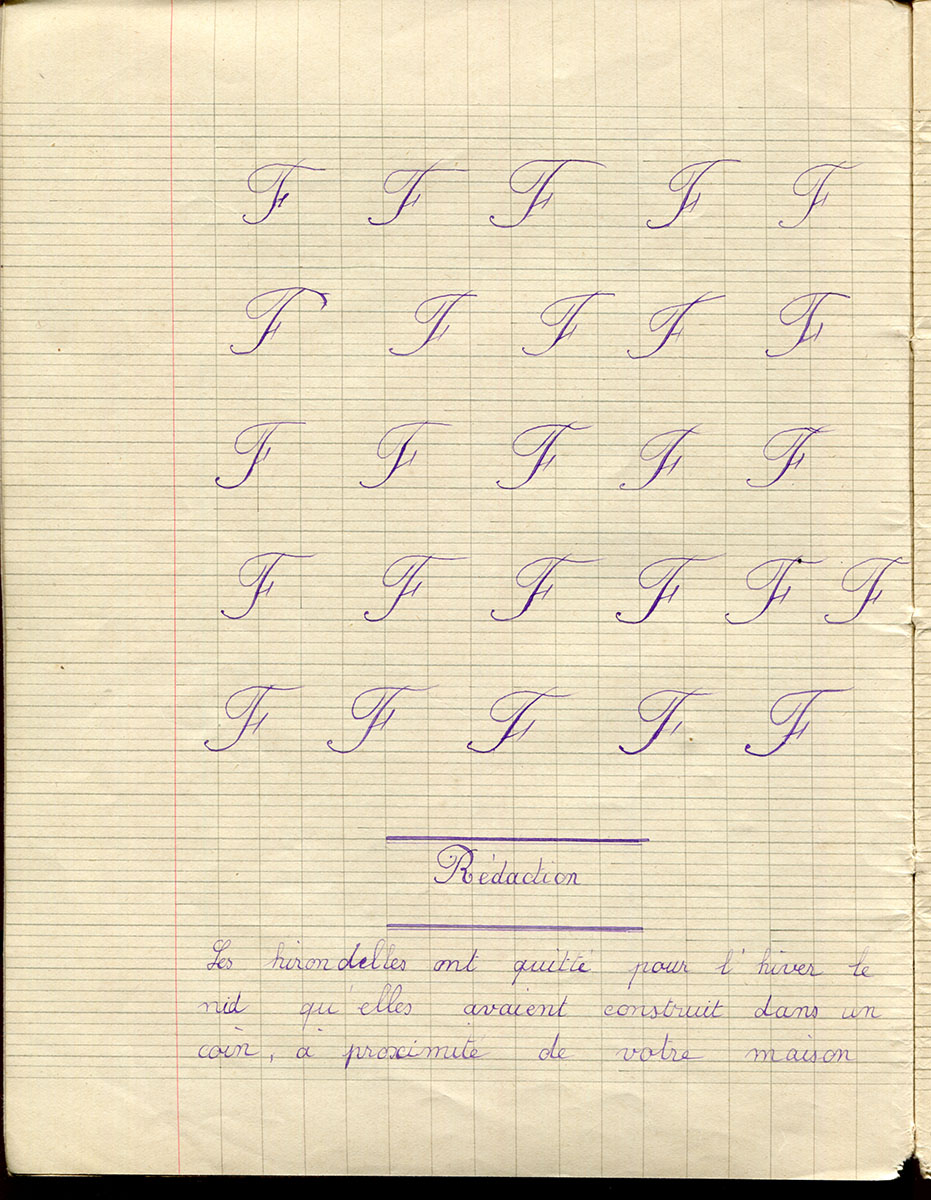 F F F F F
F F F F F
F F F F F
F F F F F F
F F F F F
Rédaction
Les hirondelles ont quitté pour l'hiver le
nid qu'elles avaient construit dans un
coin, à proximité de votre maison